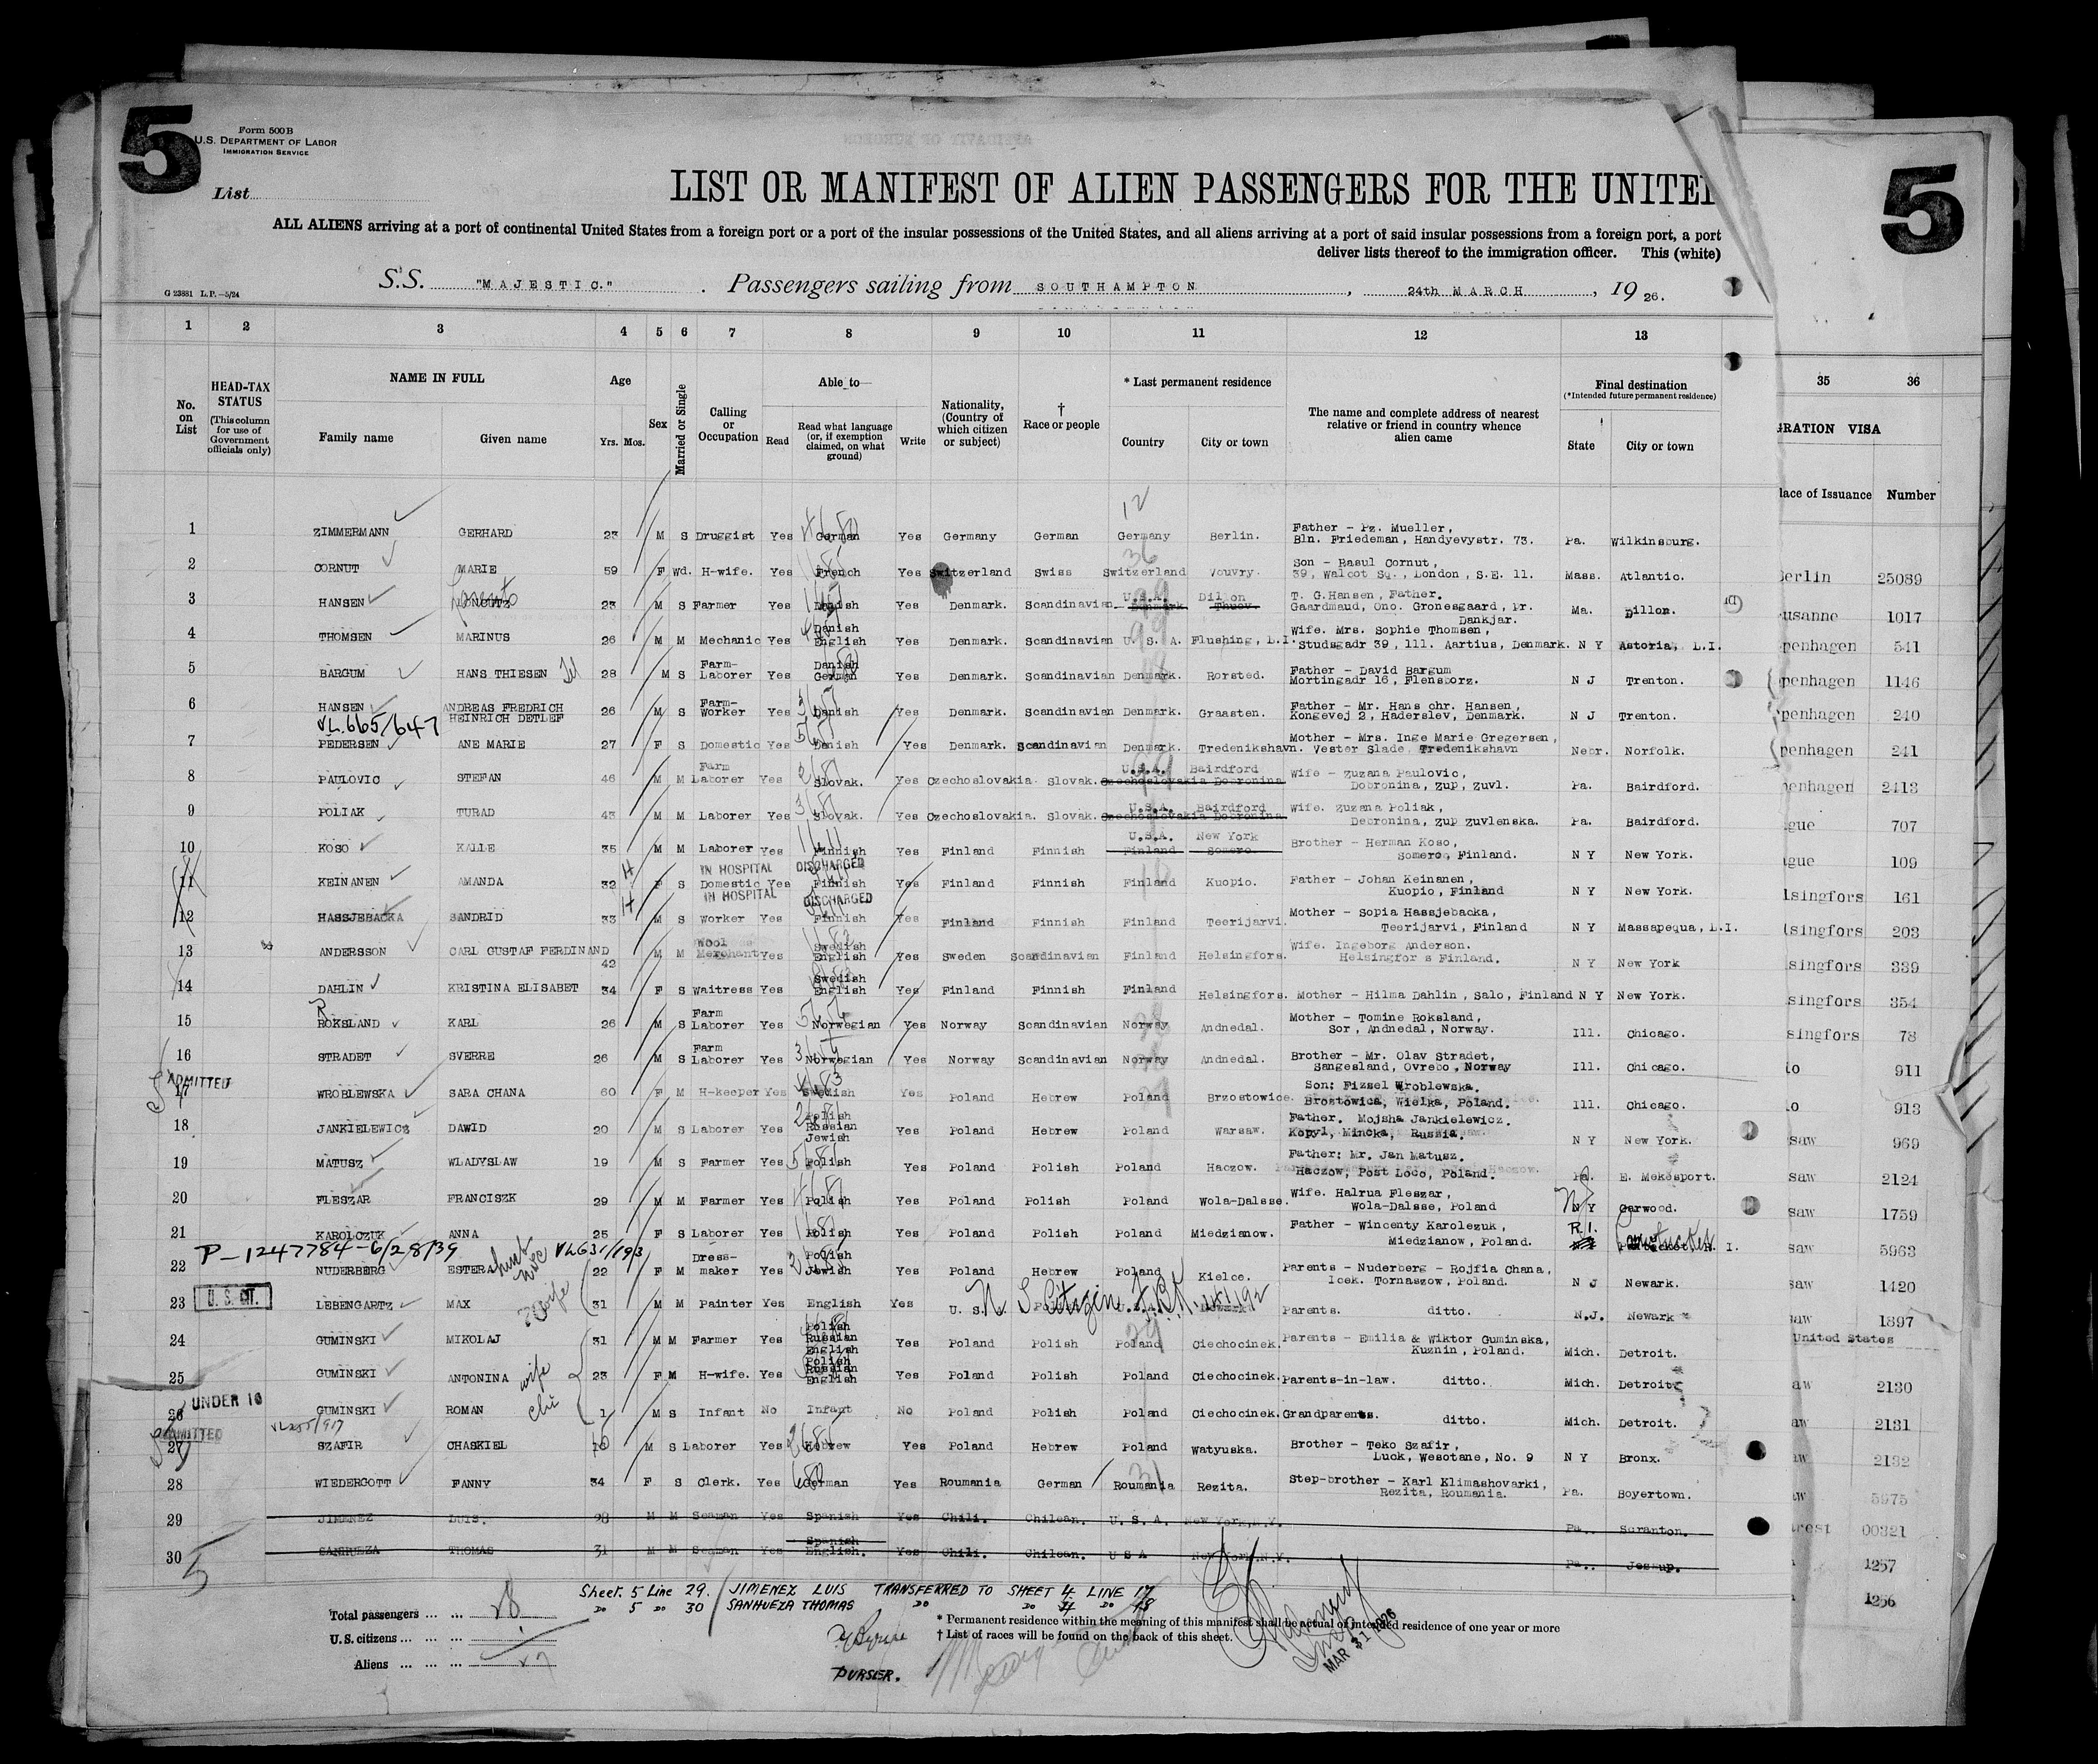 5
Form 500B
U.S. DEPARTMENT OF LABOR
IMMIGRATION SERVICE
List
5
LIST OR MANIFEST OF ALIEN PASSENGERS FOR THE UNITED
ALL ALIENS arriving at a port of continental United States from a foreign port or a port of the insular possessions of the United States, and all aliens arriving at a port of said insular possessions from a foreign port, a port
deliver lists thereof to the immigration officer. This (white)
G 23881 L.P.—5/24
S.S. "MAJESTIC." Passengers sailing from SOUTHAMPTON, 24th MARCH, 1926.
1 2 3 4 5 6 7 8 9 10 11 12 13 35 36
No. on List
HEAD-TAX STATUS (This column for use of Government officials only)
NAME IN FULL
Family name Given name
Age Yrs. Mos.
Sex
Married or Single
Calling or Occupation
Able to—
Read Read what language (or, if exemption claimed, on what ground) Write
Nationality, (Country of which citizen or subject)
† Race or people
* Last permanent residence
Country City or town
The name and complete address of nearest relative or friend in country whence alien came
Final destination (*Intended future permanent residence)
State City or town
GRATION VISA
lace of Issuance Number
12
1 ZIMMERMANN GERHARD 23 M S Druggist Yes German Yes Germany German Germany Berlin. Father - Pz. Mueller, Bln. Friedeman, Handyevystr. 73. Pa. Wilkinsburg.
36
2 CORNUT MARIE 59 F Wd. H-wife. Yes French Yes Switzerland Swiss Switzerland Vouvry. Son - Rasul Cornut, 39, Walcot Sq., London, S.E. 11. Mass. Atlantic. Berlin 25089
3 HANSEN 23 M S Farmer Yes Danish Yes Denmark. Scandinavian U.S.A. Denmark Dillon Thuov. T. G.Hansen, Father. Gaardmaud, Ono. Gronesgaard, pr. Dankjar. Ma. Dillon. usanne 1017
4 THOMSEN MARINUS 26 M M Mechanic Yes Danish English Yes Denmark. Scandinavian U. S. A. Flushing, L.I. Wife. Mrs. Sophie Thomsen, Studsgadr 39, lll. Aartius, Denmark. N Y Astoria, L.I. penhagen 541
5 BARGUM HANS THIESEN 28 M S Farm-Laborer Yes Danish German Yes Denmark. Scandinavian Denmark. Rorsted. Father - David Bargum Mortingadr 16, Flensborz. N J Trenton. penhagen 1146
6 HANSEN ANDREAS FREDRICH HEINRICH DETLEF 26 M S Farm-Worker Yes Danish Yes Denmark. Scandinavian Denmark. Graasten. Father - Mr. Hans chr. Hansen, Kongevej 2, Haderslev, Denmark. N J Trenton. penhagen 240
VL.665/647
7 PEDERSEN ANE MARIE 27 F S Domestic Yes Danish Yes Denmark. Scandinavian Denmark. Tredenikshavn. Mother - Mrs. Inge Marie Gregersen, Vester Slade Tredenikshavn Nebr. Norfolk. penhagen 241
8 PAULOVIC STEFAN 46 M M Farm Laborer Yes Slovak. Yes Czechoslovakia Slovak. U.S.A. Bairdford Czechoslovakia Dobronina. Wife - Zuzana Paulovic, Dobronina, zup, zuvl. Pa. Bairdford. penhagen 2413
9 POLIAK TURAD 43 M M Laborer Yes Slovak. Yes Czechoslovakia. Slovak. U.S.A. Bairdford Czechoslovakia Dobronina. Wife. Zuzana Poliak, Debronina, zup zuvlenska. Pa. Bairdford. gue 707
10 KOSO KALLE 35 M M Laborer Yes Finnish Yes Finland Finnish U.S.A. New York Finland Somero. Brother - Herman Koso, Somero, Finland. N Y New York. ague 109
IN HOSPITAL DISCHARGED
11 KEINANEN AMANDA 32 F S Domestic Yes Finnish Yes Finland Finnish Finland Kuopio. Father - Johan Keinanen, Kuopio, Finland N Y New York. lsingfors 161
IN HOSPITAL DISCHARGED
12 HASSJEBACKA SANDRID 33 M S Worker Yes Finnish Yes Finland Finnish Finland Teerijarvi. Mother - Sopia Hassjebacka, Teerijarvi, Finland N Y Massapequa, L.I. lsingfors 203
13 ANDERSSON CARL GUSTAF FERDINAND 42 M M Wool Merchant Yes Swedish English Yes Sweden Scandinavian Finland Helsingfors. Wife. Ingeborg Anderson. Helsingfor s Finland. N Y New York singfors 339
14 DAHLIN KRISTINA ELISABET 34 F S Waitress Yes Swedish English Yes Finland Finnish Finland Helsingfors. Mother - Hilma Dahlin, Salo, Finland N Y New York. singfors 354
15 ROKSLAND KARL 26 M S Farm Laborer Yes Norwegian Yes Norway Scandinavian Norway Andnedal. Mother - Tomine Roksland, Sor, Andnedal, Norway. Ill. Chicago. singfors 78
16 STRADET SVERRE 26 M S Farm Laborer Yes Norwegian Yes Norway Scandinavian Norway Andnedal. Brother - Mr. Olav Stradet, Sangesland, Ovrebo, Norway Ill. Chicago. lo 911
ADMITTED
17 WROBLEWSKA SARA CHANA 60 F M H-keeper Yes Yes Poland Hebrew Poland Brzostowice. Son: Fizsel Wroblewska. Brostowica, Wielka, Poland. Ill. Chicago. lo 913
18 JANKIELEWICZ DAWID 20 M S Laborer Yes Polish Russian Jewish Yes Poland Hebrew Poland Warsaw. Father. Mojsha Jankielewicz. Kopyl, Mincka, Russia. N Y New York. saw 969
19 MATUSZ WLADYSLAW 19 M S Farmer Yes Polish Yes Poland Polish Poland Haczow. Father: Mr. Jan Matusz. Haczow, Post Loco, Poland. Pa. E. Mekesport. saw 2124
20 FLESZAR FRANCISZK 29 M M Farmer Yes Polish Yes Poland Polish Poland Wola-Dalsse. Wife. Halrua Fleszar, Wola-Dalsse, Poland N Y Garwood. saw 1759
21 KAROLCZUK ANNA 25 F S Laborer Yes Polish Yes Poland Polish Poland Miedzianow. Father - Wincenty Karolezuk, Miedzianow, Poland. R.I. Pawtucket R. I. saw 5963
P-1247784-6/28/39 VL631/193
22 NUDERBERG ESTERA 22 F M Dress-maker Yes Polish Jewish Yes Poland Hebrew Poland Kielce. Parents - Nuderberg - Rojfia Chana, Icek. Tornaszow, Poland. N J Newark. saw 1420
U.S. CIT.
23 LEBENGARTZ MAX wife 31 M M Painter Yes English Yes U. S. U S Citizen Parents. ditto. N.J. Newark saw 1897
United States
24 GUMINSKI MIKOLAJ 31 M M Farmer Yes Polish Russian English Yes Poland Polish Poland Ciechocinek. Parents - Emilia & Wiktor Guminska, Kuznin, Poland. Mich. Detroit.
25 GUMINSKI ANTONINA wife 23 F M H-wife. Yes Polish Russian English Yes Poland Polish Poland Ciechocinek. Parents-in-law. ditto. Mich. Detroit. aw 2130
UNDER 16
26 GUMINSKI ROMAN 1 M S Infant No Infant No Poland Polish Poland Ciechocinek. Grandparents. ditto. Mich. Detroit. aw 2131
ADMITTED
27 SZAFIR CHASKIEL M S Laborer Yes Hebrew Yes Poland Hebrew Poland Watyuska. Brother - Teko Szafir, Luck, Wesotane, No. 9 N Y Bronx. aw 2132
28 WIEDERGOTT FANNY 34 F S Clerk. Yes German Yes Roumania German Roumania Rezita. Step-brother - Karl Klimashovarki, Rezita, Roumania. Pa. Boyertown. aw 5975
29 JIMENEZ LUIS. 28 M M Seaman Yes Spanish Yes Chili. Chilean. U. S. A. New York, N.Y. Pa.. Scranton. rest 00321
30 SANHUEZA THOMAS 31 M M Seaman Yes Spanish English. Yes Chili. Chilean. U S A New York, N.Y. Pa.. Jessup. 1257
1256
5
Sheet. 5 Line 29. JIMENEZ LUIS TRANSFERRED TO SHEET 4 LINE 17
Do 5 Do 30 SANHUEZA THOMAS Do Do 4 Do 18
Total passengers ... ... 28
U.S. citizens ... ... ... 1
Aliens ... ... ... 27
PURSER.
* Permanent residence within the meaning of this manifest shall be actual or intended residence of one year or more
† List of races will be found on the back of this sheet.
MAR 31 1926